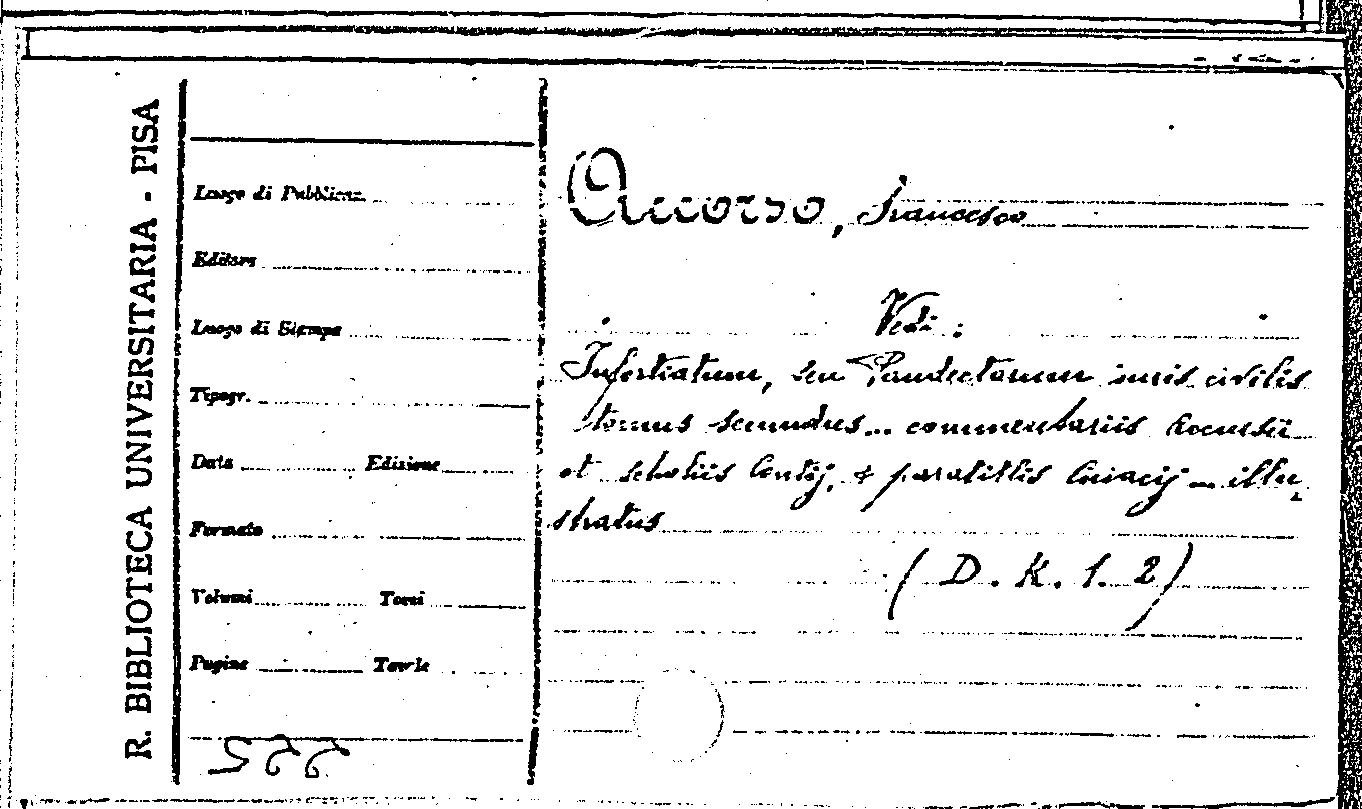 R. BIBLIOTECA UNIVERSITARIA - PISA
Luogo di Pubblicaz.
Editore
Luogo di Stampa
Tipogr.
Data Edizione
Formato
Volumi Tomi
Pagine Tavole
Accorso, Francesco
Vedi:
Infortiatum, seu Pandectarum iuris civilis
tomus secundus... commentariis Accursii
et scholiis Contij, & paratitlis Cuiacij ... illu-
stratus
(D. K. 1. 2)